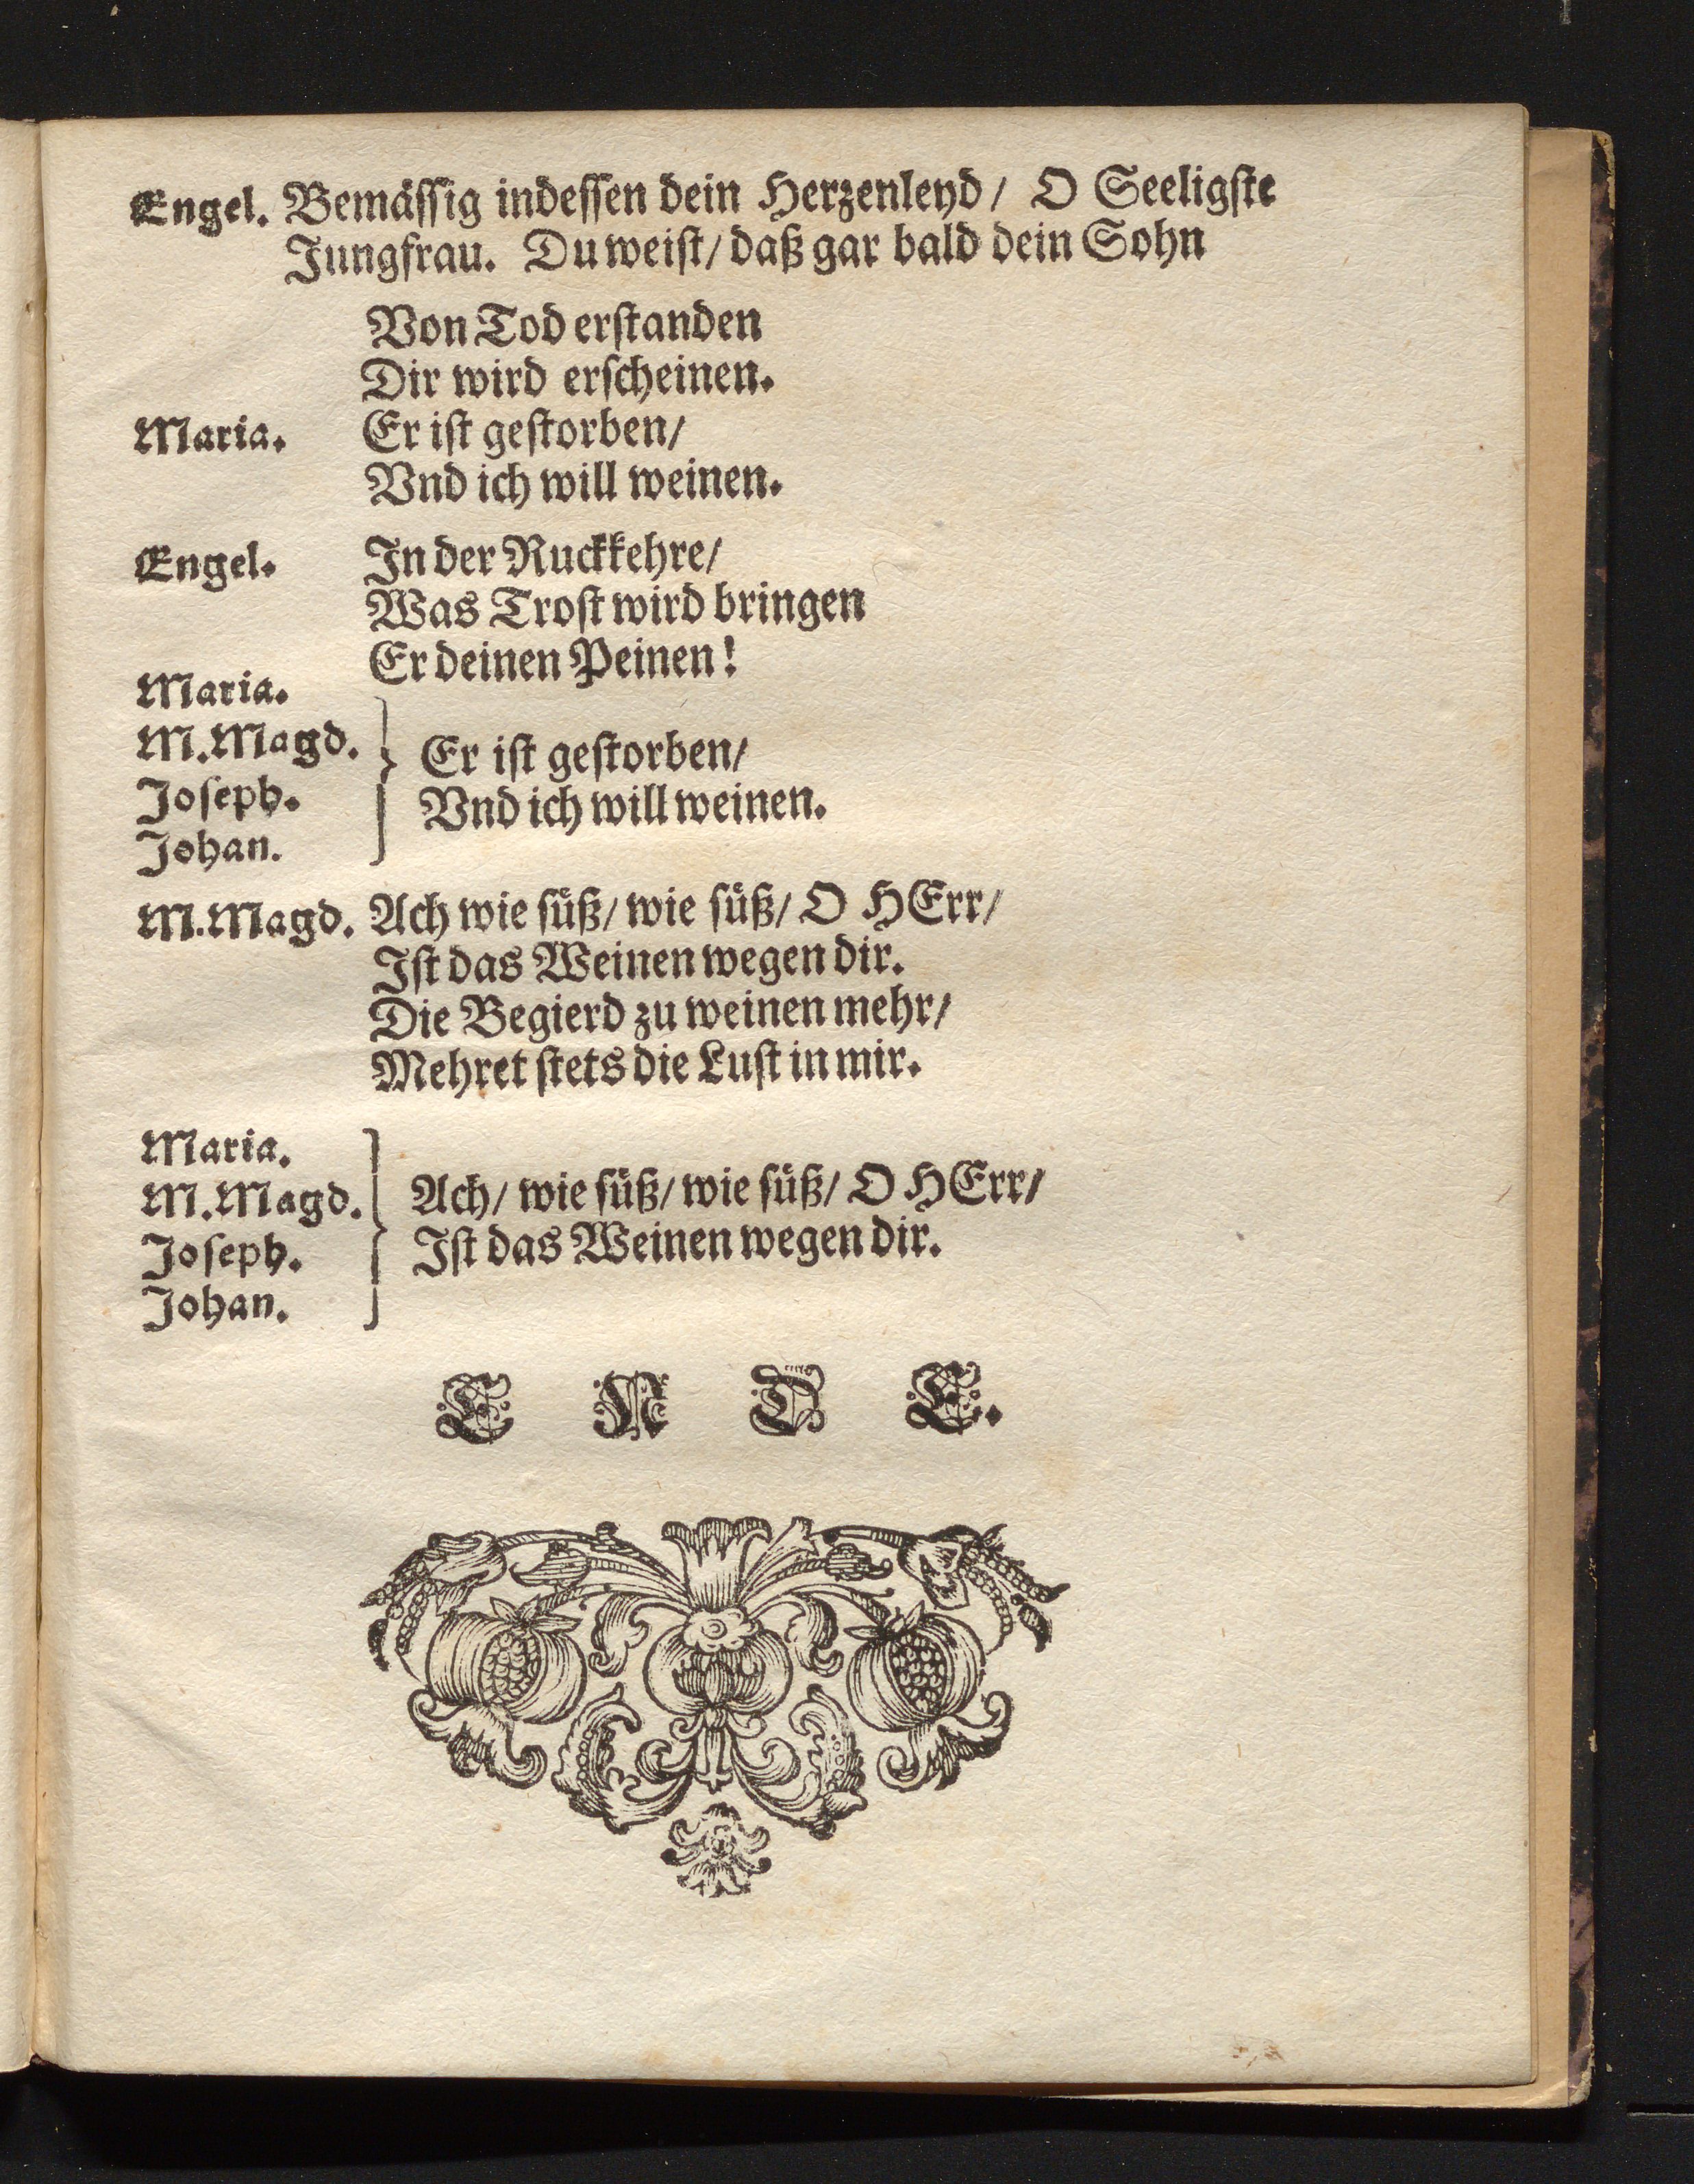 Engel. Bemässig indessen dein Herzenleyd/ O Seeligste
Jungfrau. Du weist/ daß gar bald dein Sohn
Von Tod erstanden
Dir wird erscheinen.
Maria. Er ist gestorben/
Vnd ich will weinen.
Engel. In der Ruckkehre/
Was Trost wird bringen
Er deinen Peinen!
Maria.
M. Magd.
Joseph.
Johan.
Er ist gestorben/
Vnd ich will weinen.
M. Magd. Ach wie süß/ wie süß/ O HErr/
Ist das Weinen wegen dir.
Die Begierd zu weinen mehr/
Mehret stets die Lust in mir.
Maria.
M. Magd.
Joseph.
Johan.
Ach/ wie süß/ wie süß/ O HErr/
Ist das Weinen wegen dir.
E N D E.